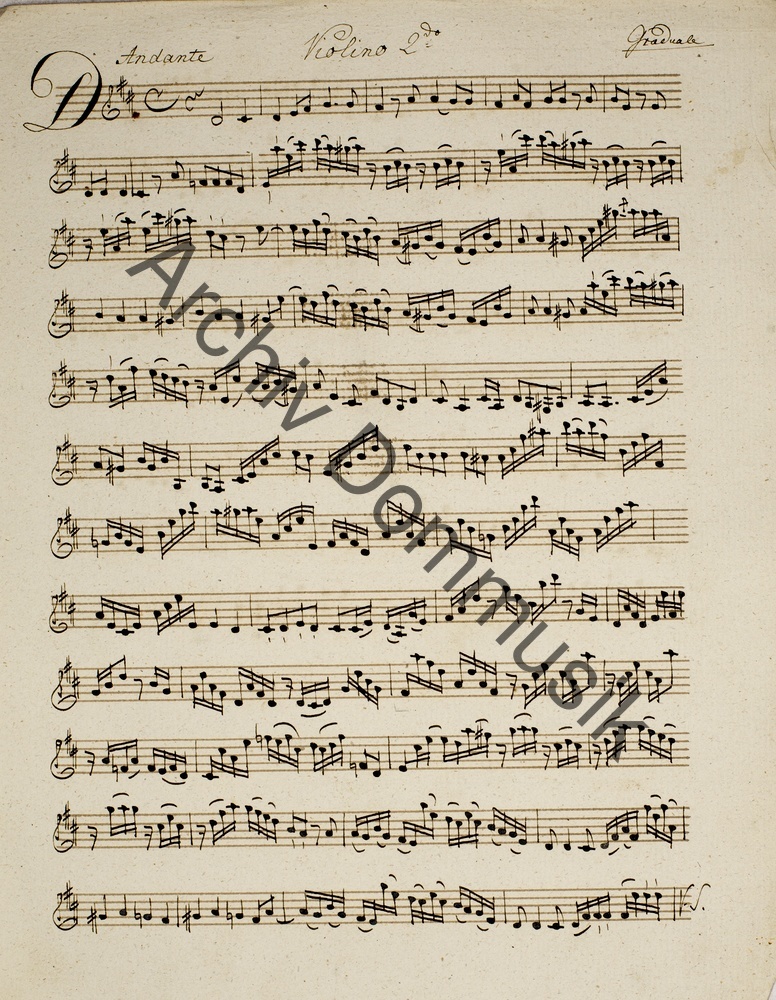 D Andante Violino 2do Graduale
Archiv Dommusik
V.S.